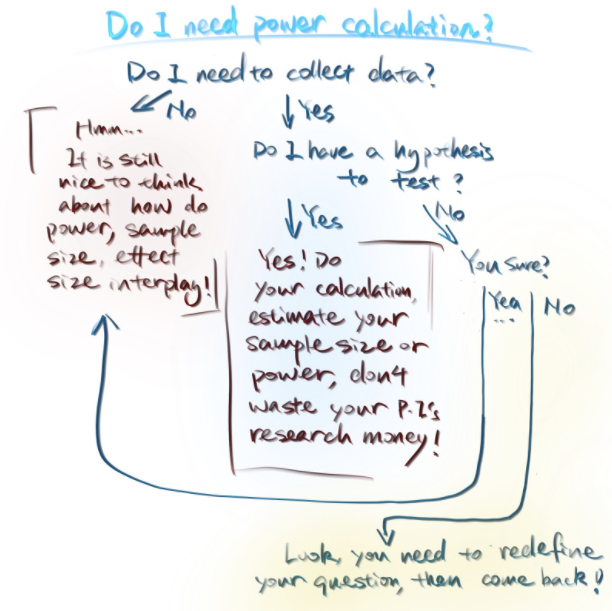 Do I need power calculation?
Do I need to collect data?
No
Yes
Hmm...
It is still
nice to think
about how do
power, sample
size, effect
size interplay!
Do I have a hypothesis
to test?
Yes
No
Yes! Do
your calculation,
estimate your
sample size or
power, don't
waste your P.I's
research money!
You sure?
Yea
...
No
Look, you need to redefine
your question, then come back!